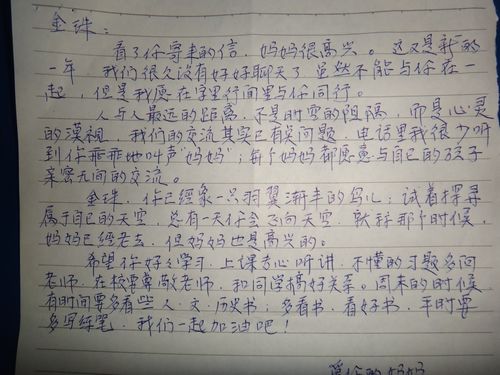 金珠：
看了你寄来的信，妈妈很高兴。这又是新的
一年，我们很久没有好好聊天了，虽然不能与你在一
起，但是我愿在字里行间里与你同行。
人与人最远的距离，不是时空的阻隔，而是心灵
的漠视，我们的交流其实已有关问题，电话里我很少听
到你乖乖地叫声“妈妈”；每个妈妈都愿意与自己的孩子
亲密无间的交流。
金珠，你已经象一只羽翼渐丰的鸟儿；试着探寻
属于自己的天空，总有一天你会飞向天空，就算那个时候，
妈妈已经老去，但妈妈也是高兴的。
希望你好好学习，上课专心听讲，不懂的习题多问
老师，在校尊敬老师，和同学搞好关系。周末的时候
有时间要多看些人、文、历史书；多看书，看好书，平时要
多写练笔，我们一起加油吧！
爱你的妈妈